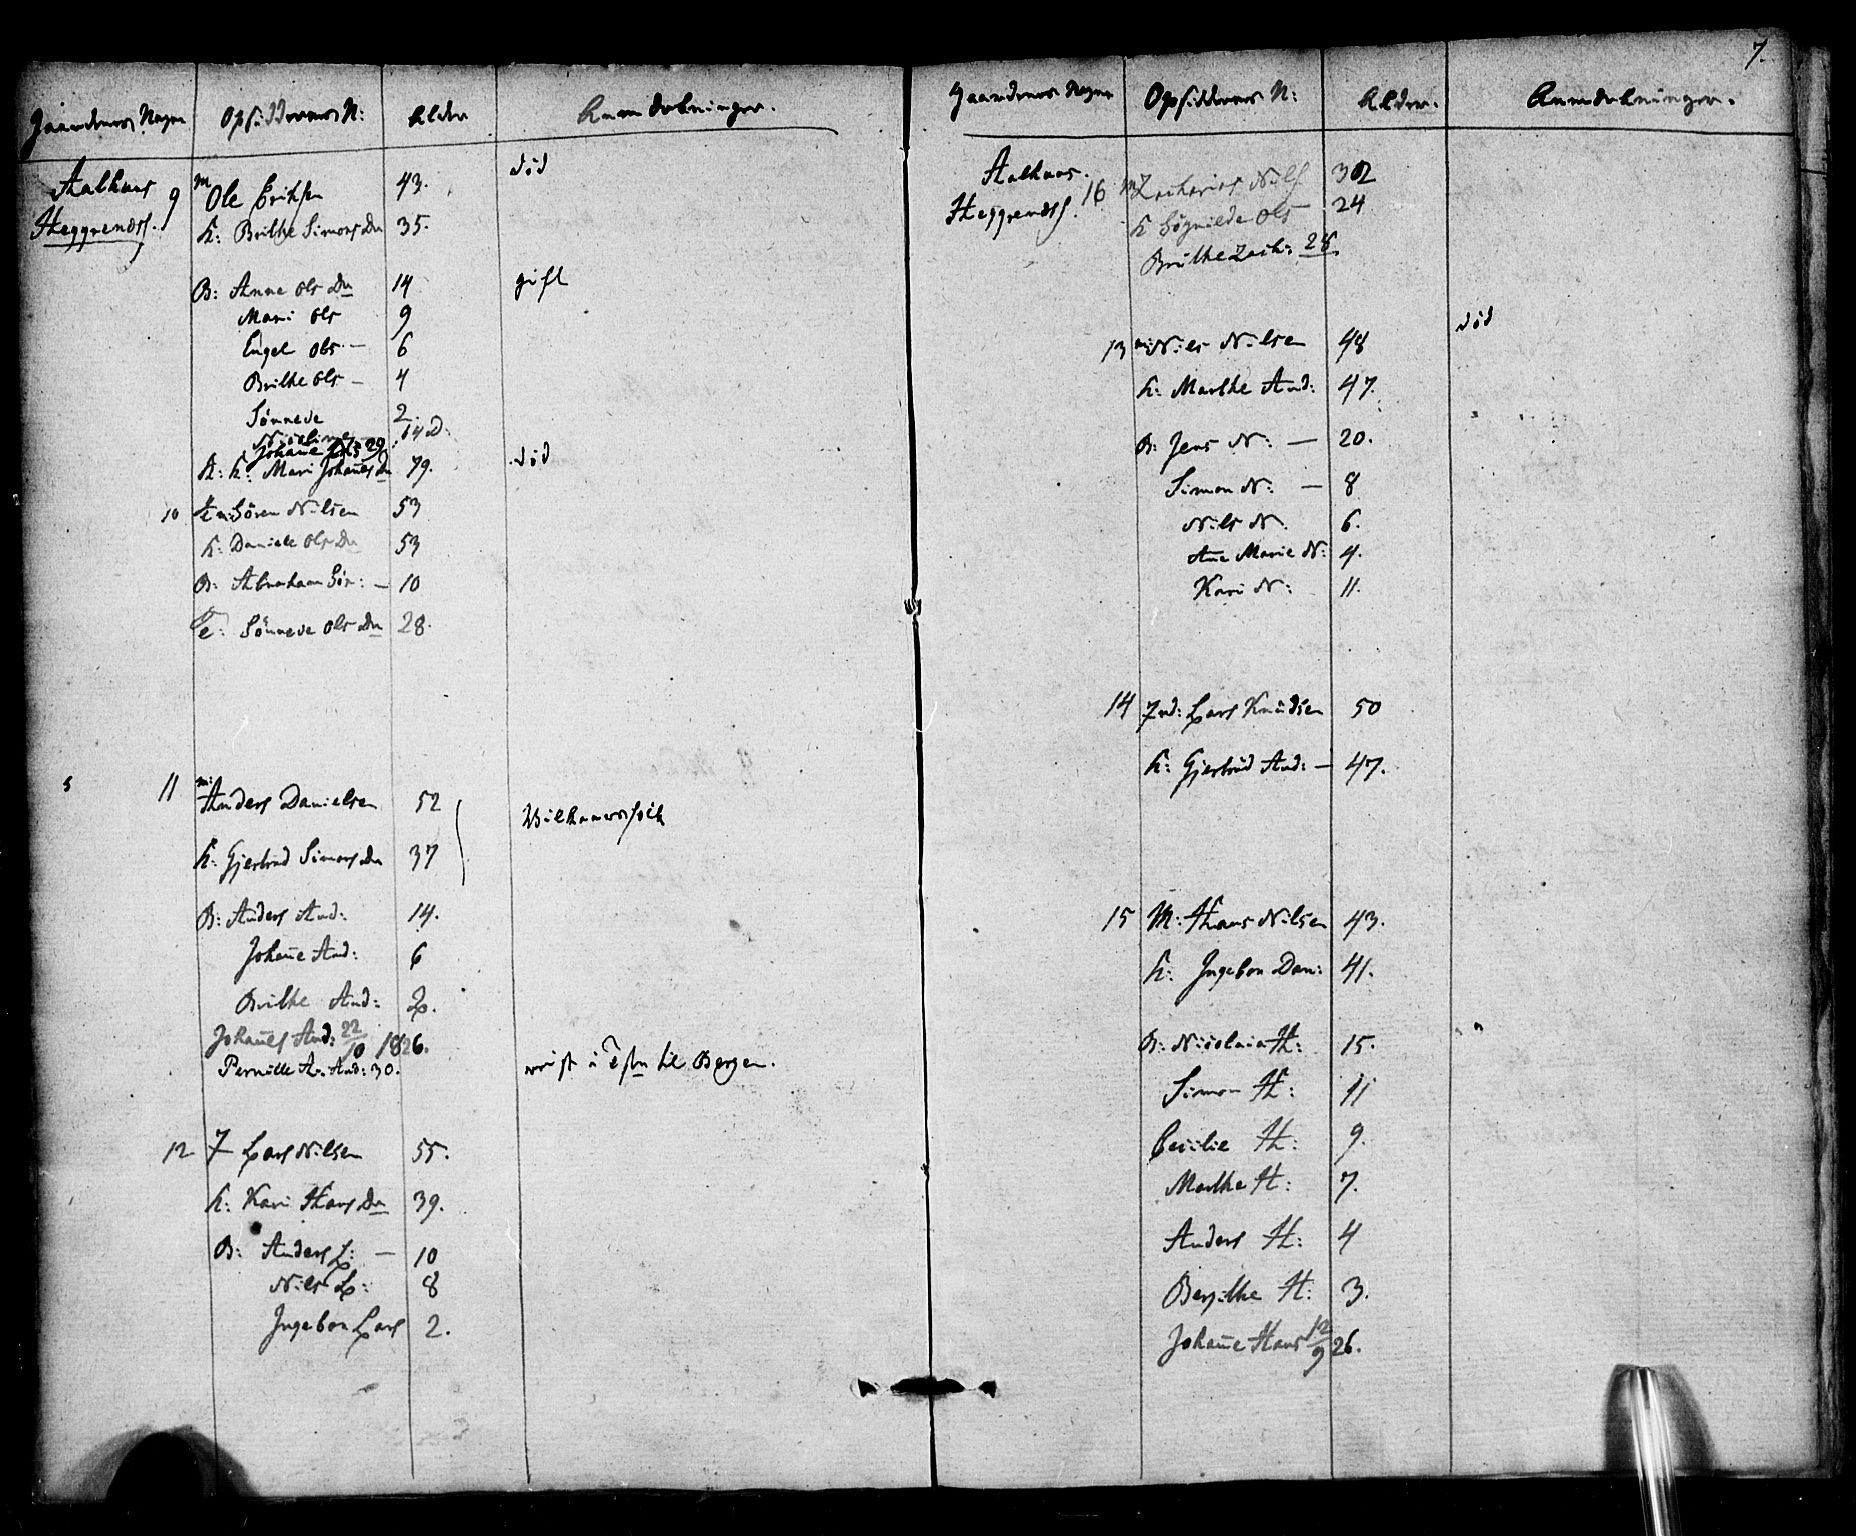 Gaardenes Nagne Opsiddernes N: Alder Anmærkninger.
Aalhuus 9 m Ole Eriksen 43. død
Heggrendsl. K: Brithe Simons Dr 35.
B: Anne Ols Dr 14 gift
Mari Ols 9
Engel Ols — 6
Brithe Ols — 4
Sønneve 2.
Nicoline 14 D:
Johañe 29
K: Mari Johañes Dr 79. død
10 Søren Nilsen 53
K: Daniele Ols Dr 53
B: Abraham Sør: — 10
Te: Sønneve Ols Dr 28.
11 m: Anders Danielsen 52
K: Gjertrud Simons Dr 37
B: Anders And: 14.
Johañe And: 6
Brithe And: 2.
Johañes And: 22/10 1826.
Pernille A. And: 30. reist i Tjeste til Bergen.
12 F Lars Nilsen 55.
K: Kari Hans Dr 39.
B: Anders L: — 10
Nils L: 8
Ingebor Lars 2.
7.
Gaardenes Nagne Opsiddernes N: Alder. Anmærkninger.
Aalhuus. 16 m Zacharias Nils 32
Heggrendsl. K Søgnilde Ols — 24
Brithe Zach: 28.
13 m: Nils Nilsen 48 død
K: Marthe And: 47.
B: Jens N: — 20.
Simon N: — 8
Nils N. 6.
Añe Marie N: 4.
Kari N: 11.
14 Ind: Lars Knudsen 50
K: Gjertrud And: — 47.
15 M: Hans Nilsen 43.
K: Ingebor Dan: 41.
B: Nicolai H: 15.
Simon H: 11
Cecilie H: 9.
Marthe H: 7.
Anders H: 4
Bersithe H: 3.
Johañe Hans 12/9 26.